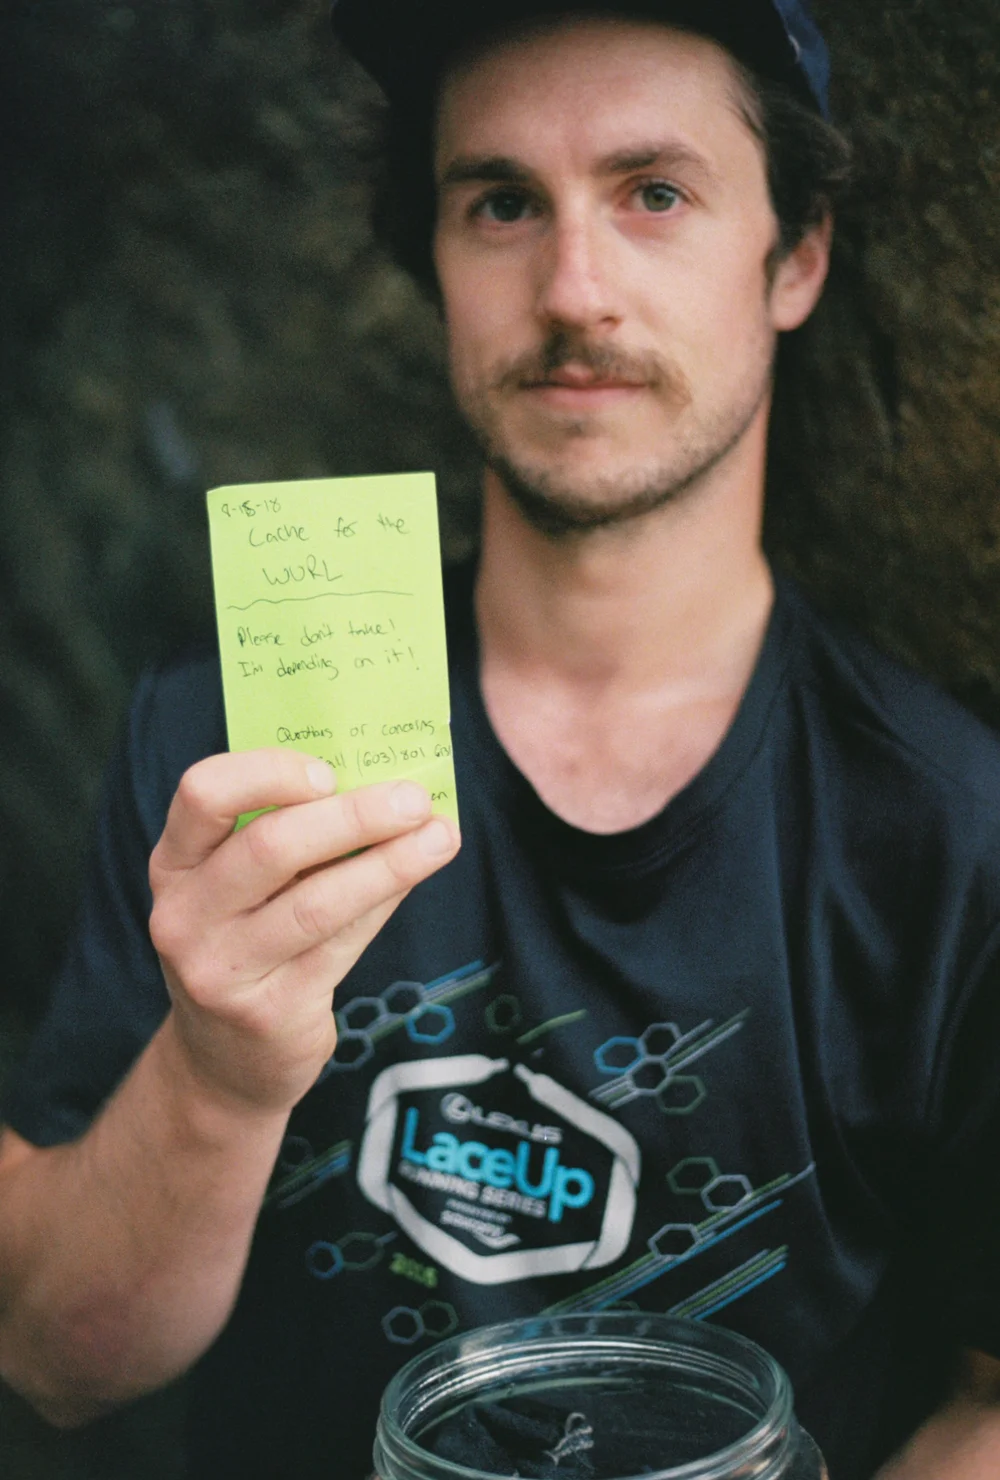 Cache for the
WURL
Please don't take!
I'm depending on it!
Questions or concerns
call (603) 801
on
LEXUS
LaceUp
RUNNING SERIES
PRESENTED BY